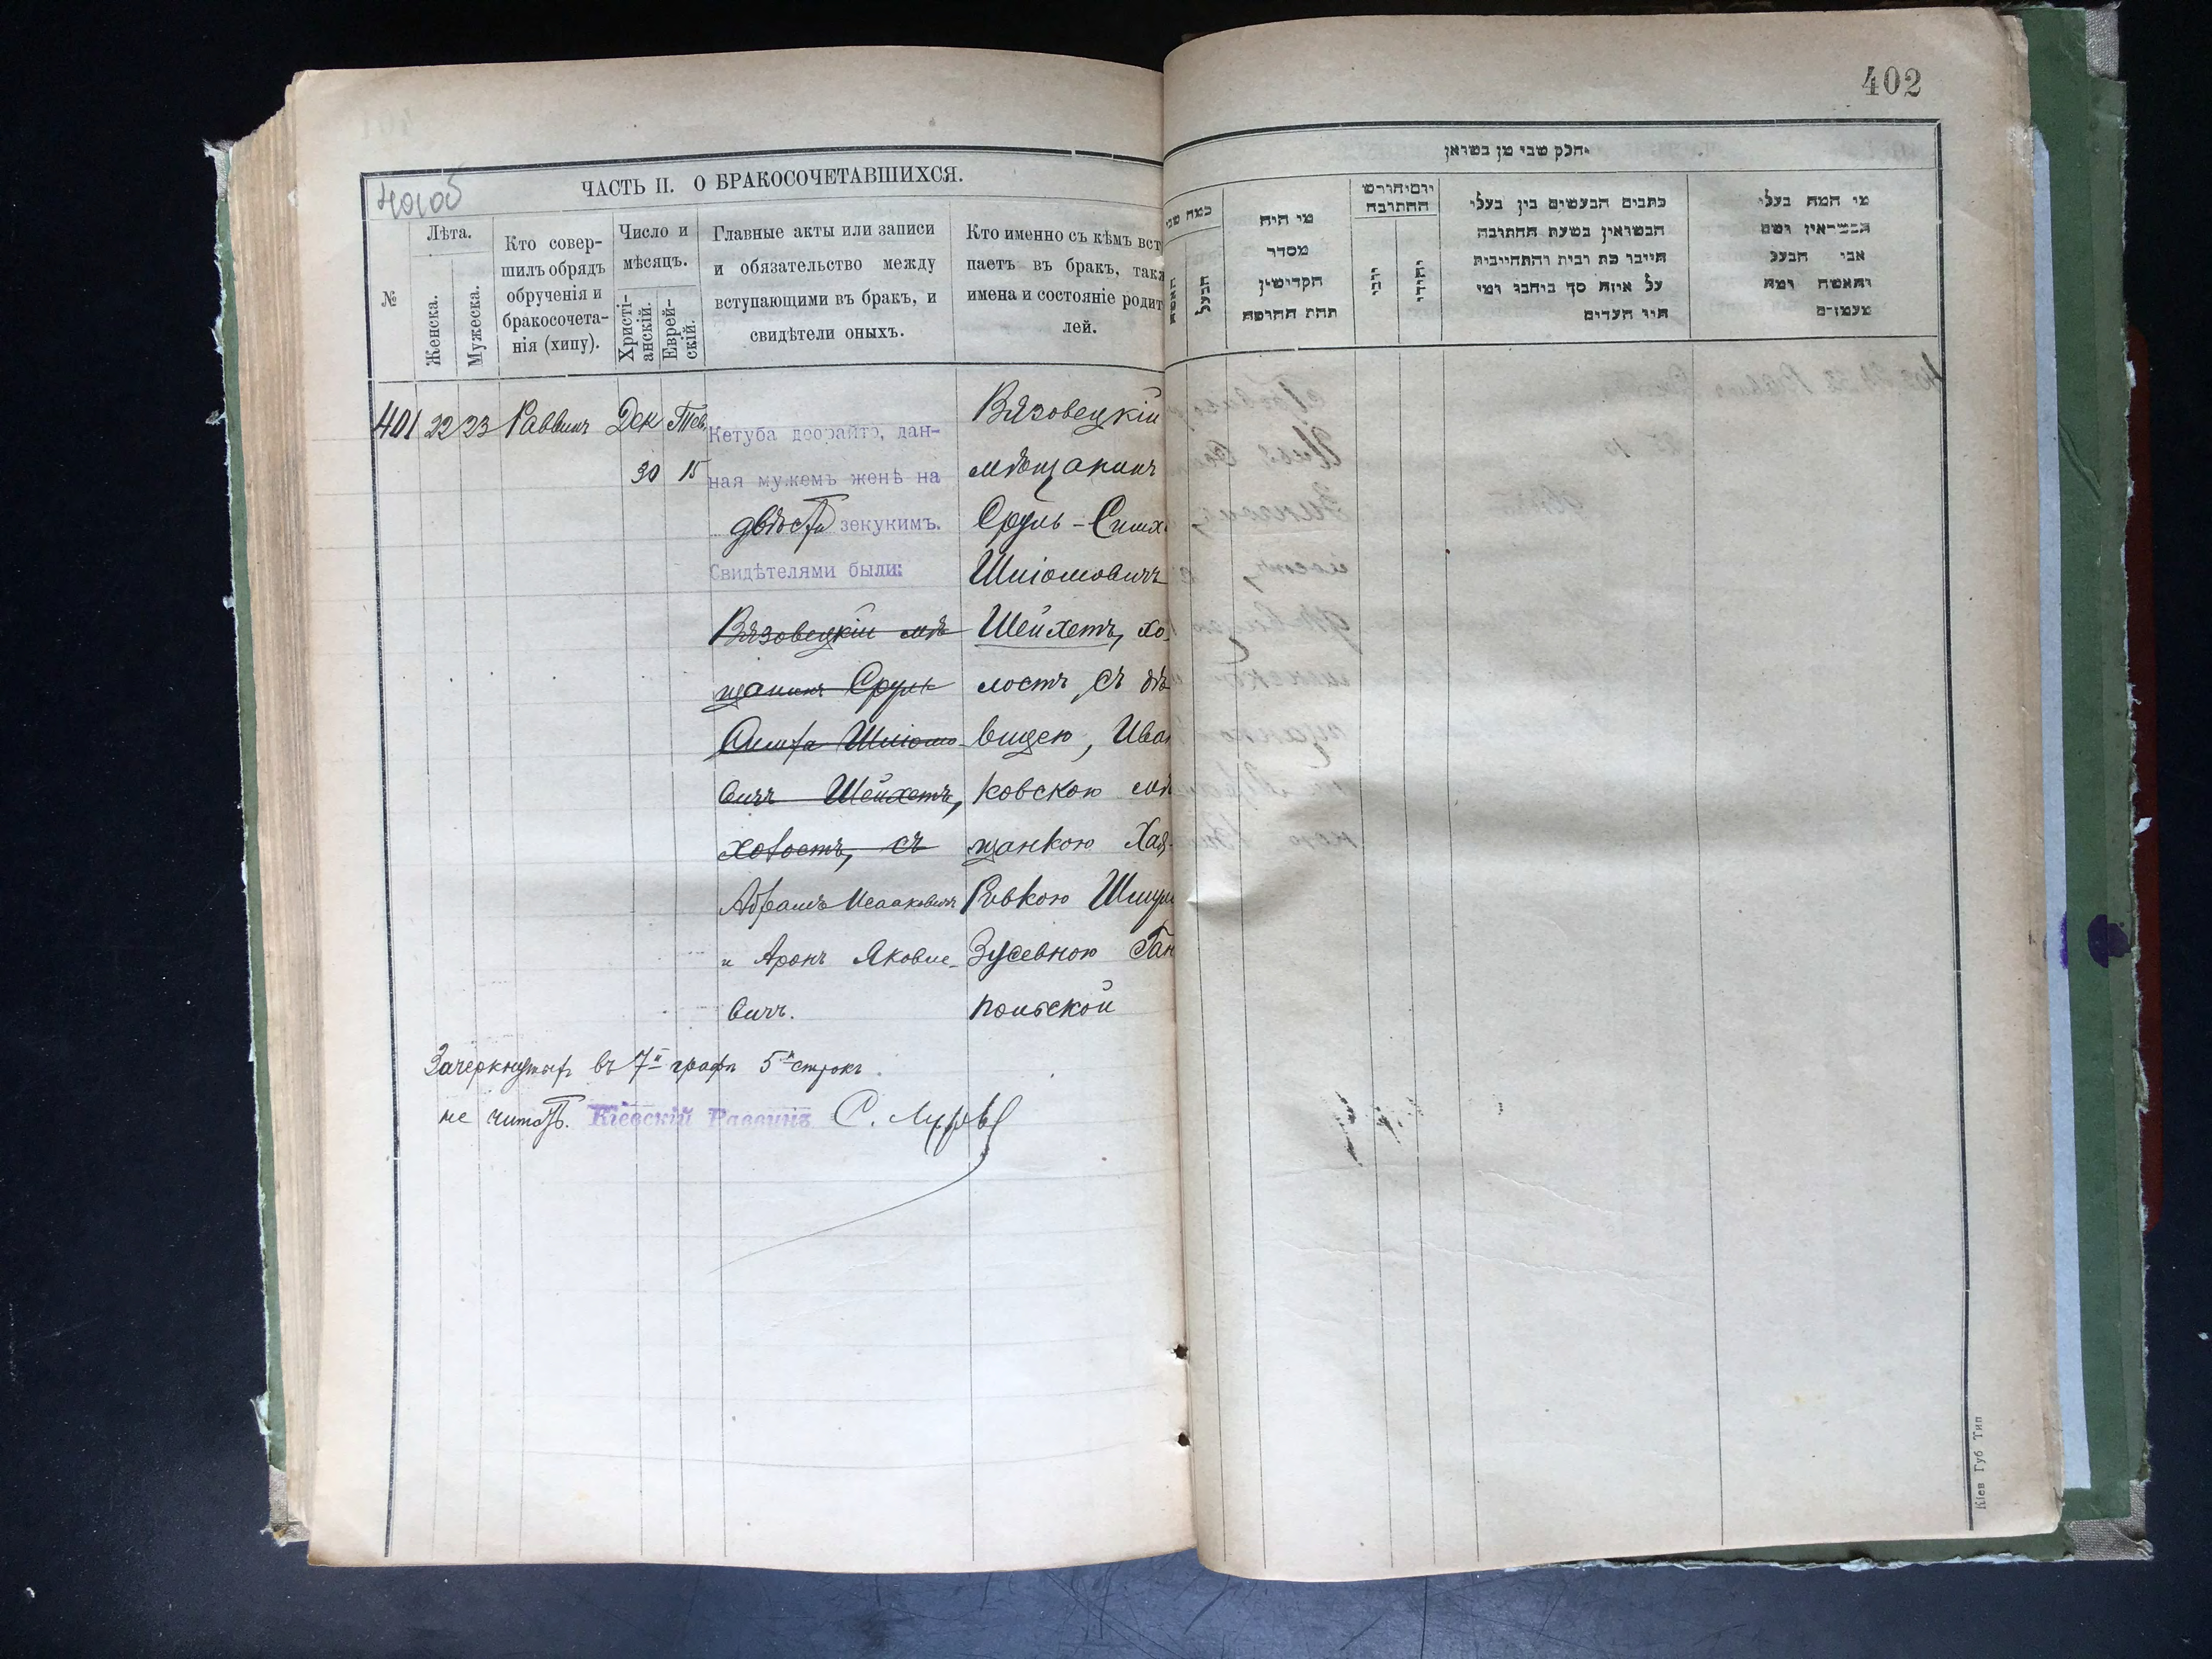 402
ЧАСТЬ II. О БРАКОСОЧЕТАВШИХСЯ.
№
Лѣта.
Женска.
Мужеска.
Кто совер-
шилъ обрядъ
обрученія и
бракосочета-
нія (хипу).
Число и
мѣсяцъ.
Христі-
анскій.
Еврей-
скій.
Главные акты или записи
и обязательство между
вступающими въ бракъ, и
свидѣтели оныхъ.
Кто именно съ кѣмъ вст
паетъ въ бракъ, такж
имена и состояніе родит
лей.
401 22 23 Раввинъ Дек Тев.
30 15
Кетуба деорайто, дан-
ная мужемъ женѣ на
двѣсти зекукимъ.
Свидѣтелями были:
Вязовецкій мѣ
щанинъ Сруль
Симха Шліомо-
вичъ Шейхетъ,
холостъ, съ
Абрамъ Исааковичъ
и Аронъ Яковле-
вичъ.
Вязовецкій
мѣщанинъ
Сруль-Симх
Шліомовичъ
Шейхетъ, хо-
лостъ, съ дѣ
вицею, Иван
ковскою мѣ
щанкою Хая-
Ривкою Шмул
Зусевною Ган
польской
Зачеркнутыхъ въ 7й графѣ 5ть строкъ
не читать. Кіевскій Раввинъ С. Лурье
חלק שבי מן בשואין
כמה שני
האשה
הבעל
מי היה
מסדר
הקדישין
תחת החופה
יום וחורש
החתובה
נוצרי
יהודי
כתבים הנעשים בין בעלי
הנשואין בשעת החתובה
חייבו כת רבית והתחייבית
על איזה סך ביהבו ומי
היו העדים
מי המה בעלי
הנשואין ושם
אבי הבעל
והאשה ומה
מעמדם
Кіев Губ Тип